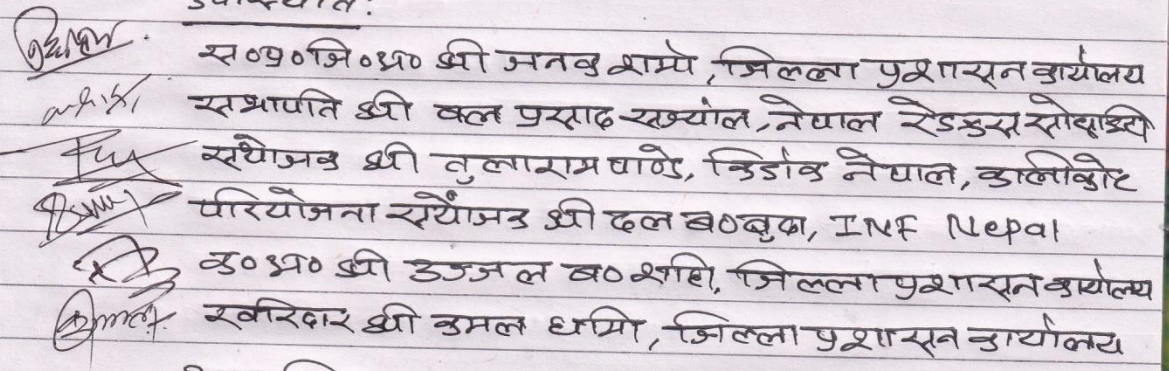 उपस्थितिः
स०प्र०जि०अ० श्री जनक शर्मा, जिल्ला प्रशासन कार्यालय
सभापति श्री कल प्रसाद सञ्योल, नेपाल रेडक्रस सोसाइटी
संयोजक श्री तुलाराम पाण्डे, किर्डाक नेपाल, कालीकोट
परियोजना संयोजक श्री दल ब० बुढा, INF Nepal
क०अ० श्री उज्जल ब० शाही, जिल्ला प्रशासन कार्यालय
खरिदार श्री कमल धामी, जिल्ला प्रशासन कार्यालय